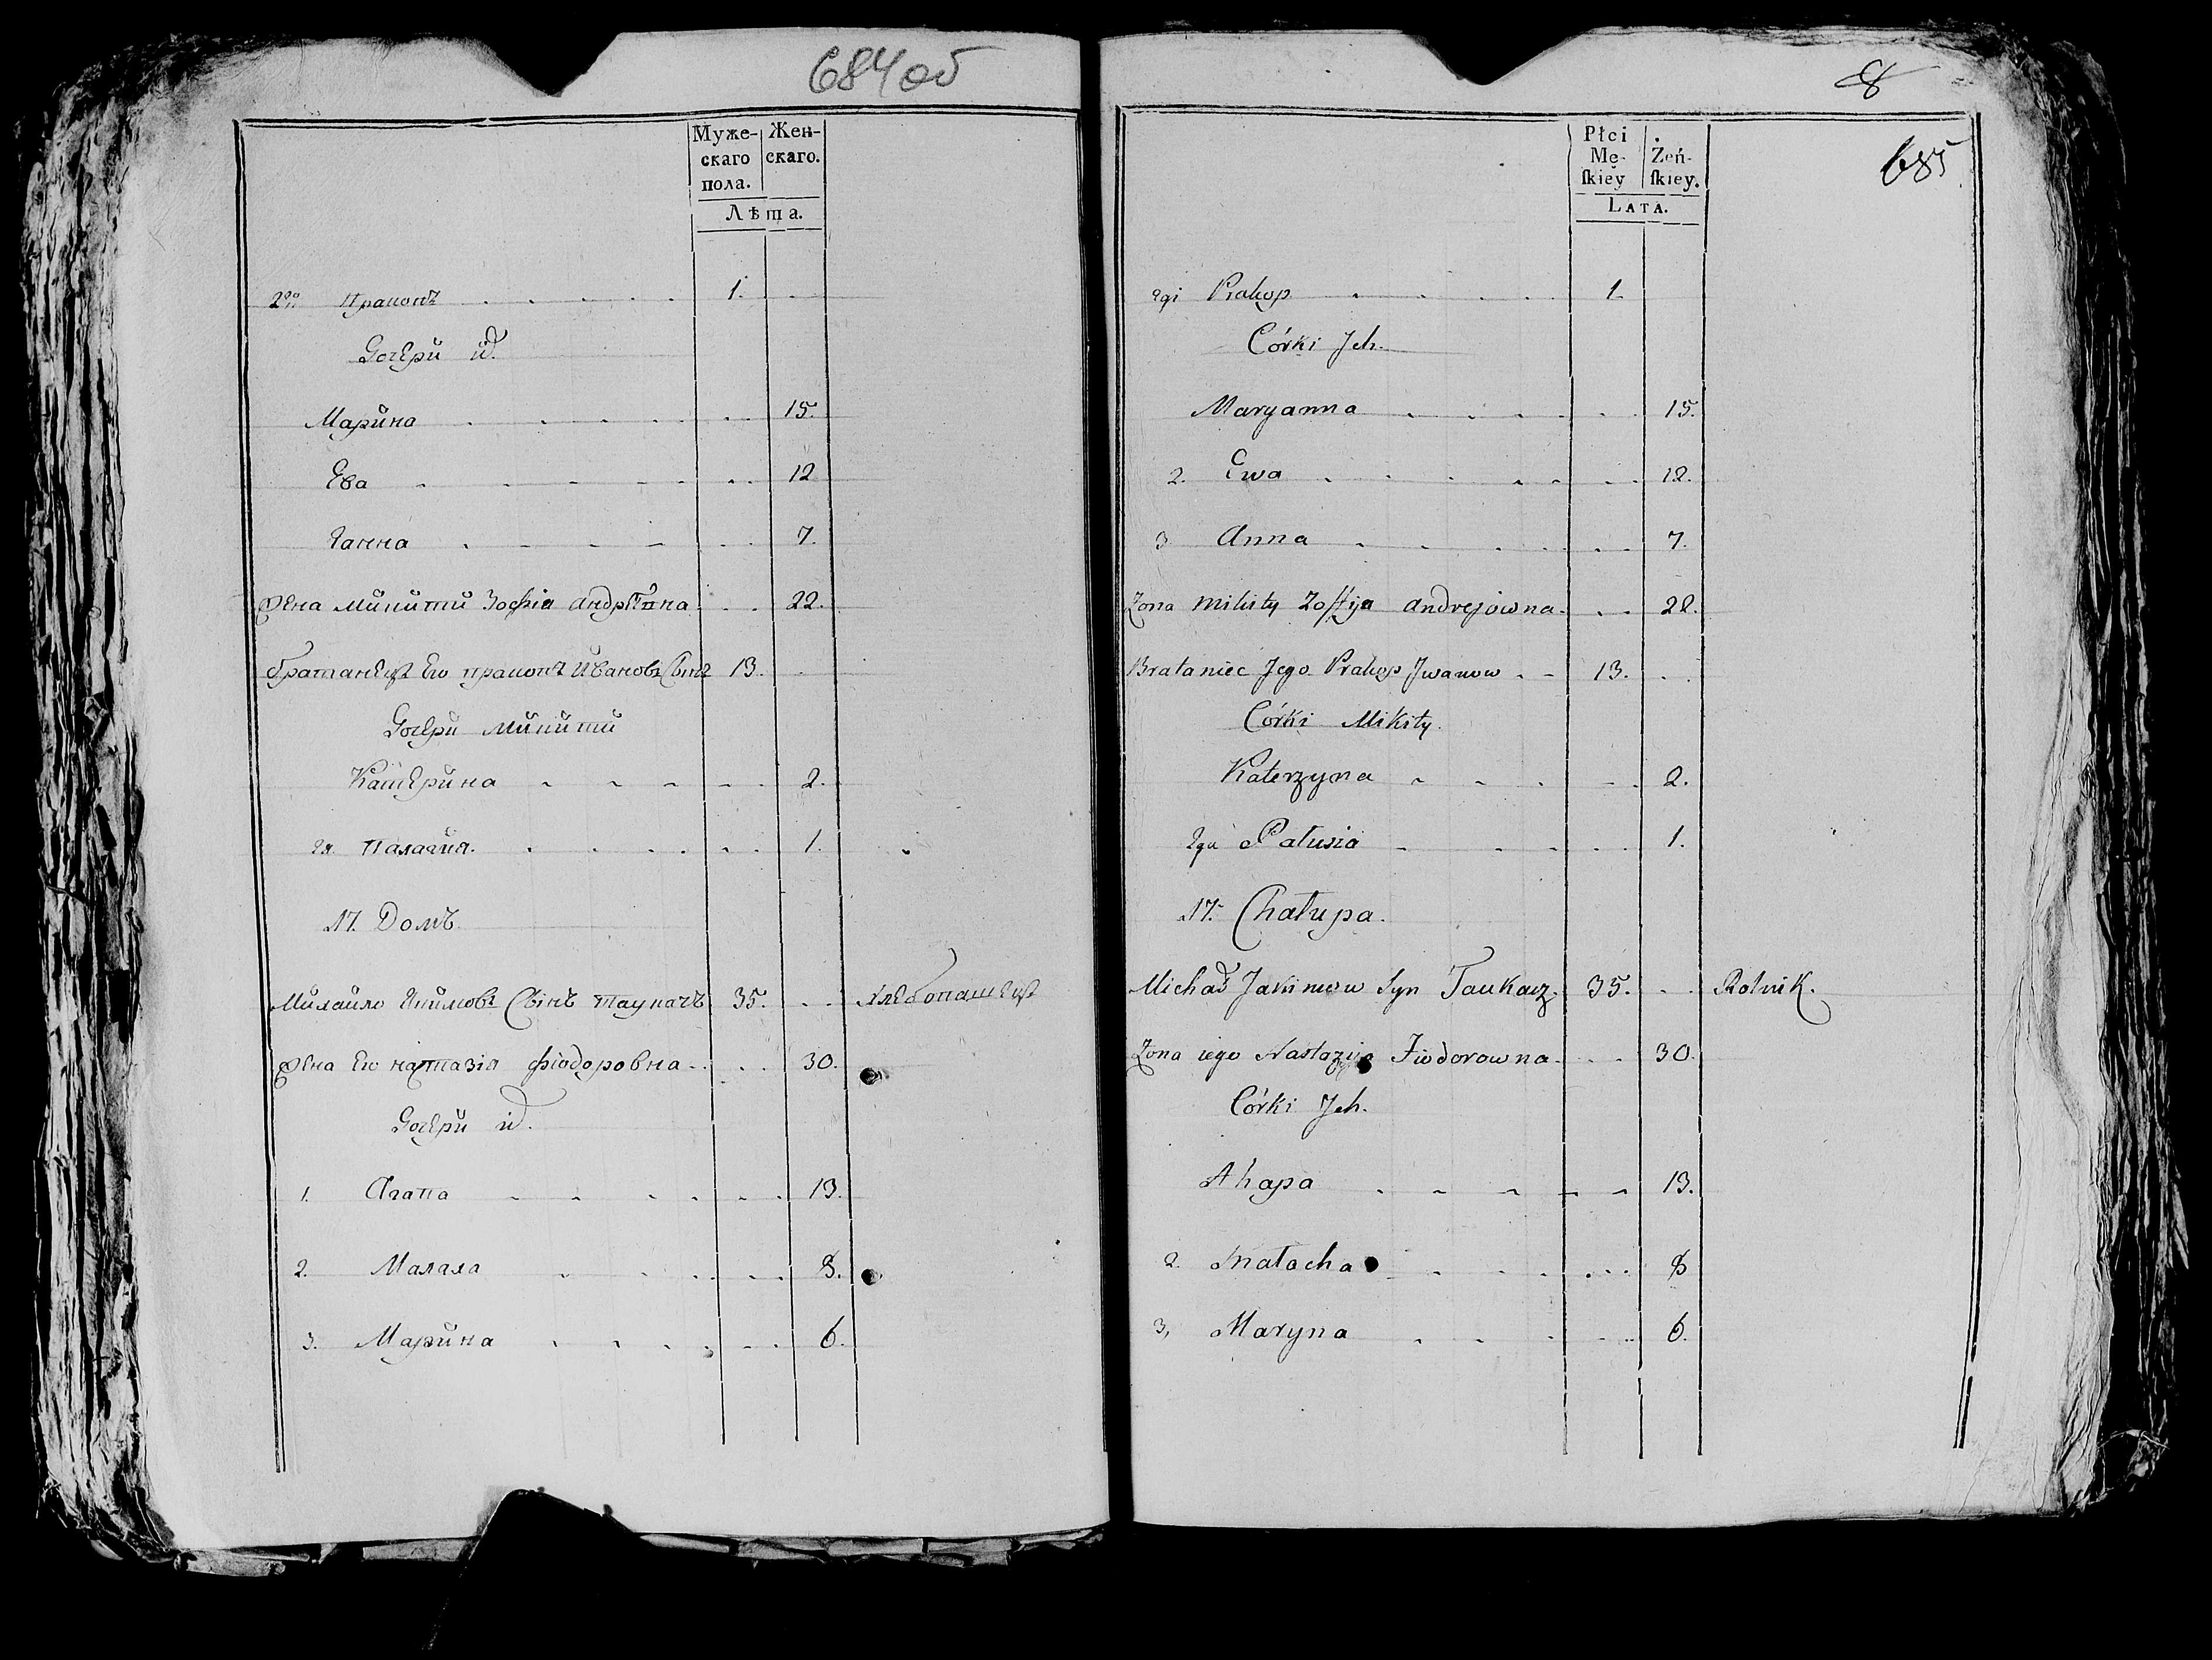 684об
Муже- Жен-
скаго скаго.
пола.
Лѣта.
2го. Прокопъ 1.
Дочери их
Марина 15.
Ева 12
Ганна 7.
Жена Микити Зофія Андрѣйна 22.
братанецъ Его прокопъ Ивановъ Сынъ 13.
Дочери Микити
Катерина 2.
2я. Палагия. 1.
17. Домъ
Михайло Якимовъ Сынъ таукачъ 35. хлебопашецъ
Жена Его настазія фіодоровна 30.
Дочери их.
1. Агапа 13.
2. Малаха 8.
3. Марина 6.
8
685
Płci Żeń-
Mę- skiey.
skiey
LATA.
2gi Prakop 1.
Córki Jch.
Maryanna 15.
2. Ewa 12.
3 Anna 7.
Zona Mikity Zoffija Andrejowna 22.
Brataniec Jego Prakop Jwanow 13.
Córki Mikity.
Katerzyna 2.
2ga Pałusia 1.
17. Chałupa.
Michał Jakimow Syn Taukacz 35. Rolnik.
Zona iego Nastazija Fiodorowna 30.
Córki Jch.
Ahapa 13.
2. Małacha 8
3, Maryna 6.